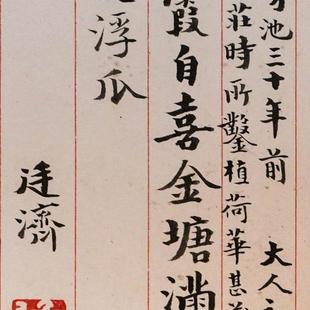 池三十年前 大人
莊時所鑿植荷華甚
霞自喜金塘滿
浮瓜
廷濟